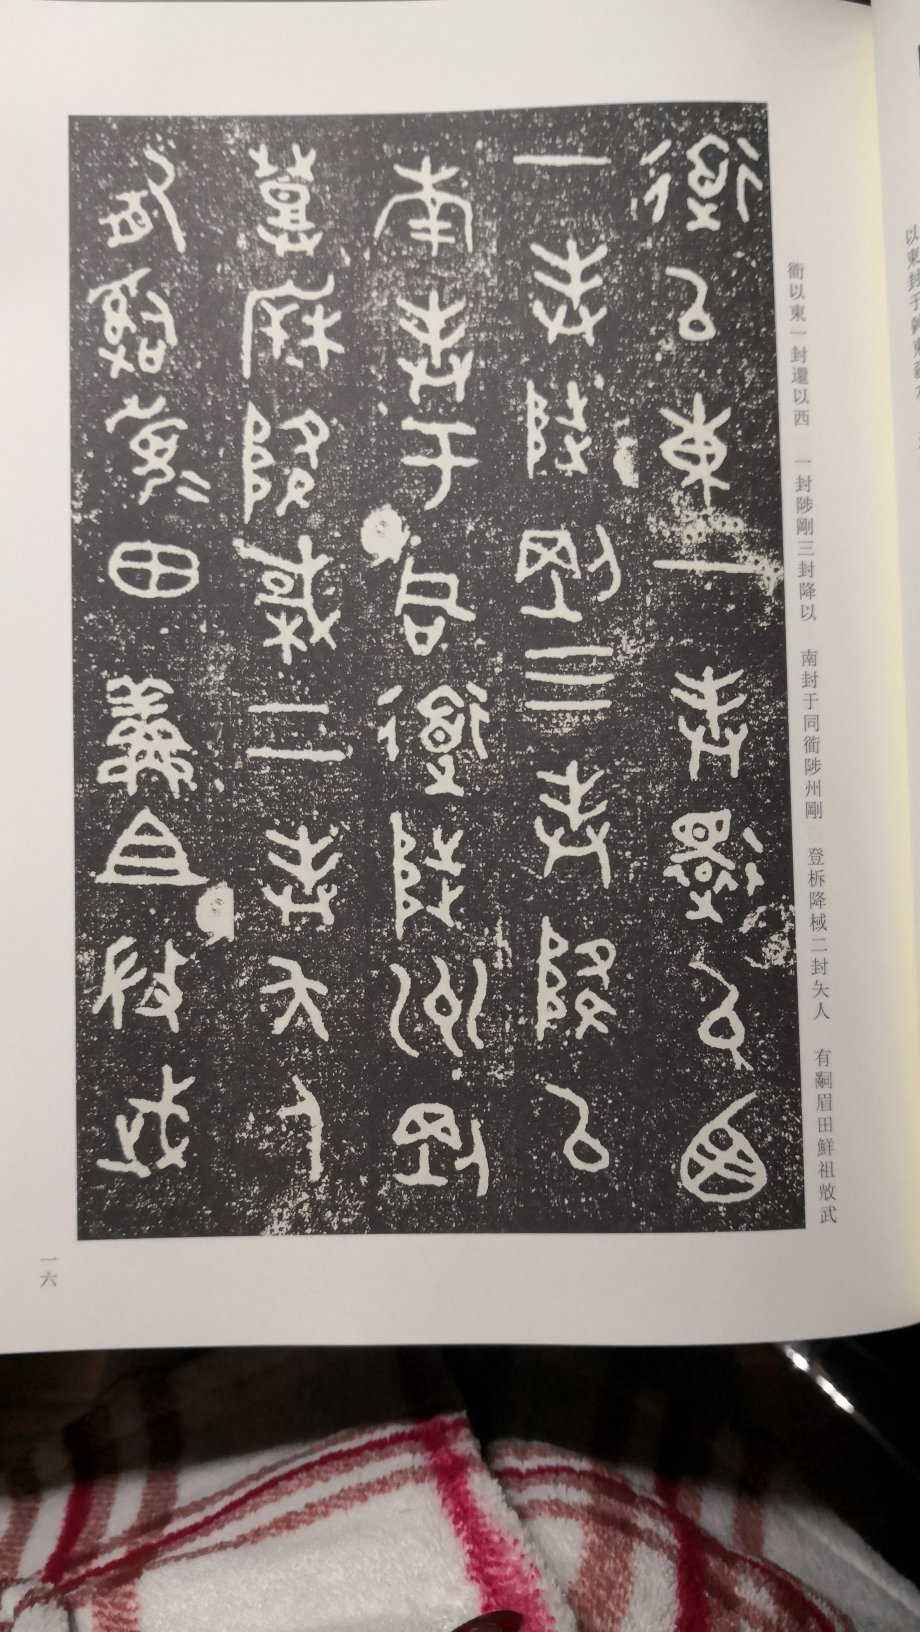 衜以東一封還以西
一封陟剛三封降以
南封于同衜陟州剛
登柝降棫二封夨人
有嗣眉田鮮祖㪔武
一六